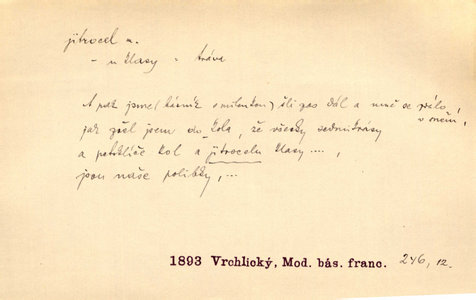 jitrocel m.
- u klasy = tráva
A pak jsme (básník s milenkou) šli zas dál a mně se zdálo
v snění,
jak šel jsem do kola, že všecky sedmikrásy
a petrklíče kol a jitrocelu klasy ....,
jsou naše polibky, ...
1893 Vrchlický, Mod. bás. franc. 246, 12.